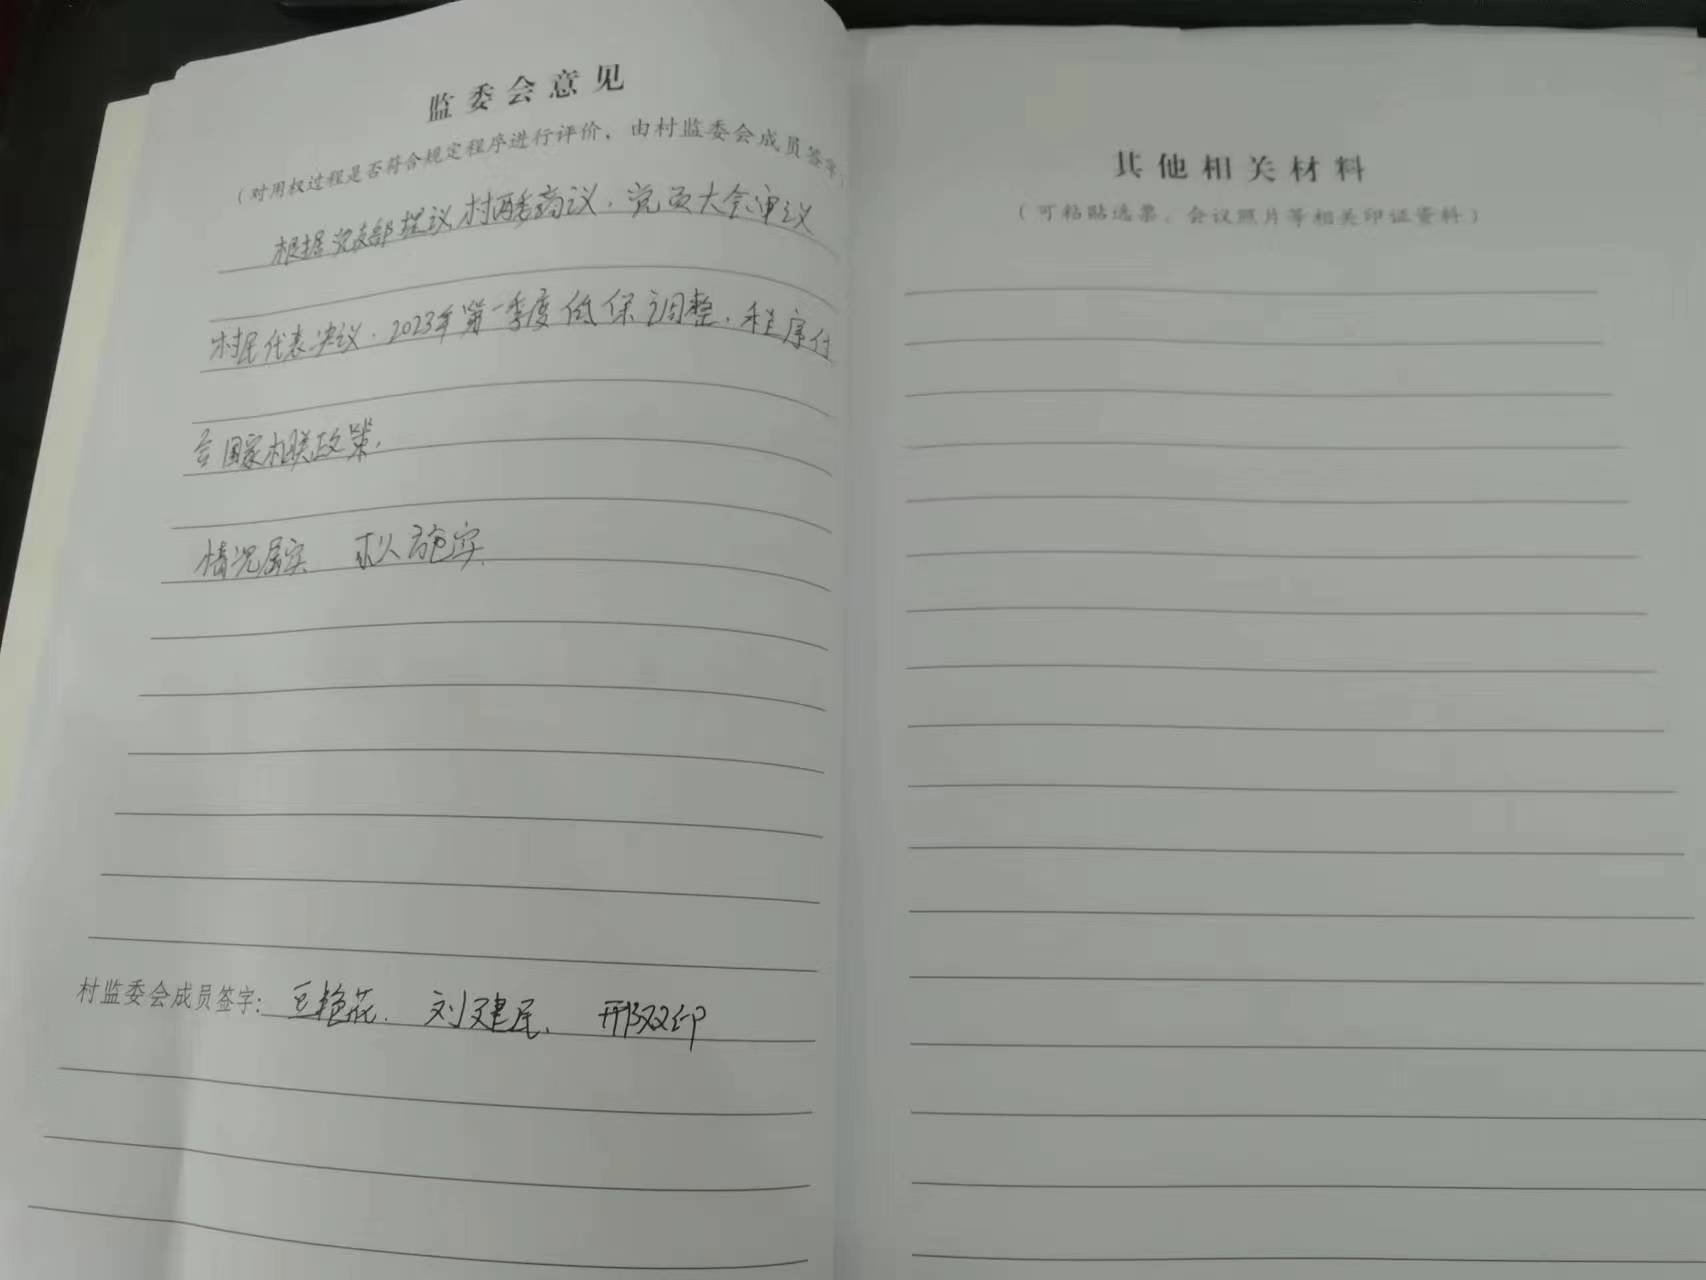 监委会意见
（对用权过程是否符合规定程序进行评价，由村监委会成员签字）
根据党支部提议村两委商议．党员大会审议
村民代表决议．2023年第一季度低保调整．程序付
合国家相关政策．
情况属实 拟施实
村监委会成员签字： 豆艳花． 刘建民． 邢双印
其他相关材料
（可粘贴选票、会议照片等相关印证资料）